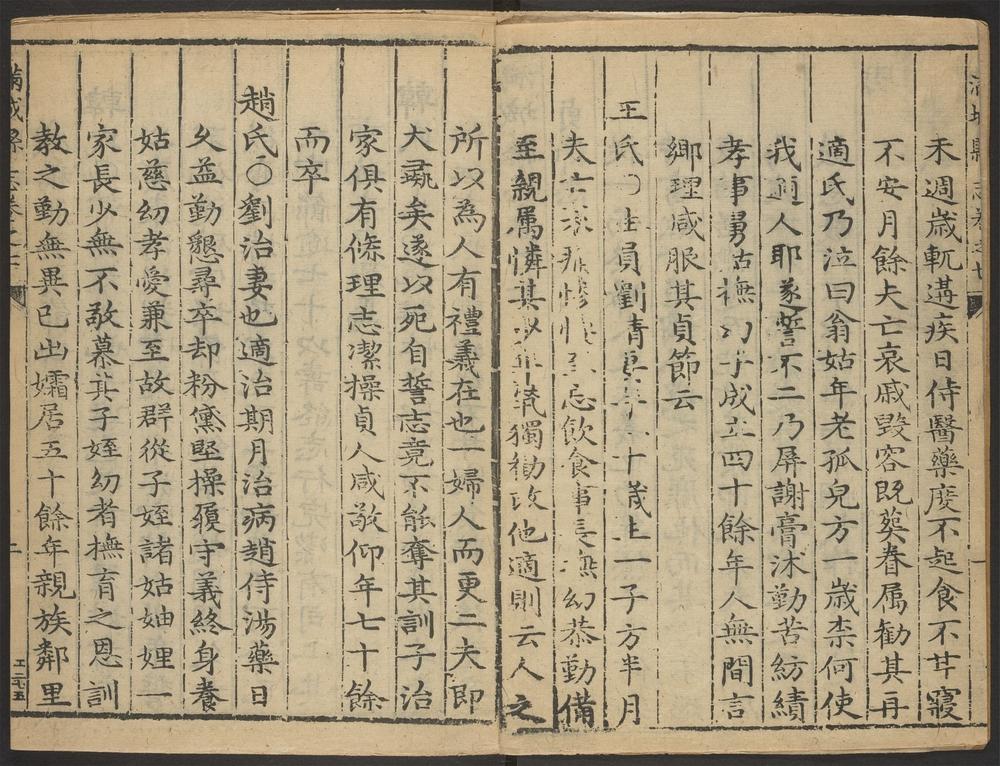 未週歲軏遘疾日侍醫藥度不起食不甘寢
不安月餘夫亡哀戚毀容既葬眷属勸其再
適氏乃泣曰翁姑年老孤兒方一歲柰何使
我適人耶遂誓不二乃屏謝膏沐勤苦紡績
孝事舅姑撫幼子成立四十餘年人無間言
鄉理咸服其貞節云
王氏〇生員劉清妻年二十歲生一子方半月
夫亡忌飲食事長撫幼恭勤備
至親属憐其少年㷀獨勸改他適則云人之
所以為人有禮義在也一婦人而更二夫即
犬彘矣遂以死自誓志竟不能奪其訓子治
家俱有條理志潔操貞人咸敬仰年七十餘
而卒
趙氏〇劉治妻也適治期月治病趙侍湯藥日
久益勤懇尋卒却粉黛堅操履守義終身養
姑慈幼孝愛兼至故群從子姪諸姑妯娌一
家長少無不敬慕其子姪幼者撫育之恩訓
教之勤無異已出孀居五十餘年親族鄰里
滿城縣志卷之七
二